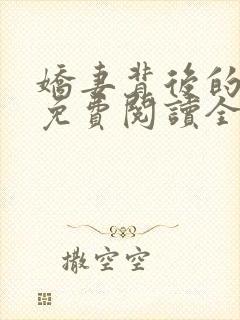 嬌妻背後的
免費閱讀全
撒空空